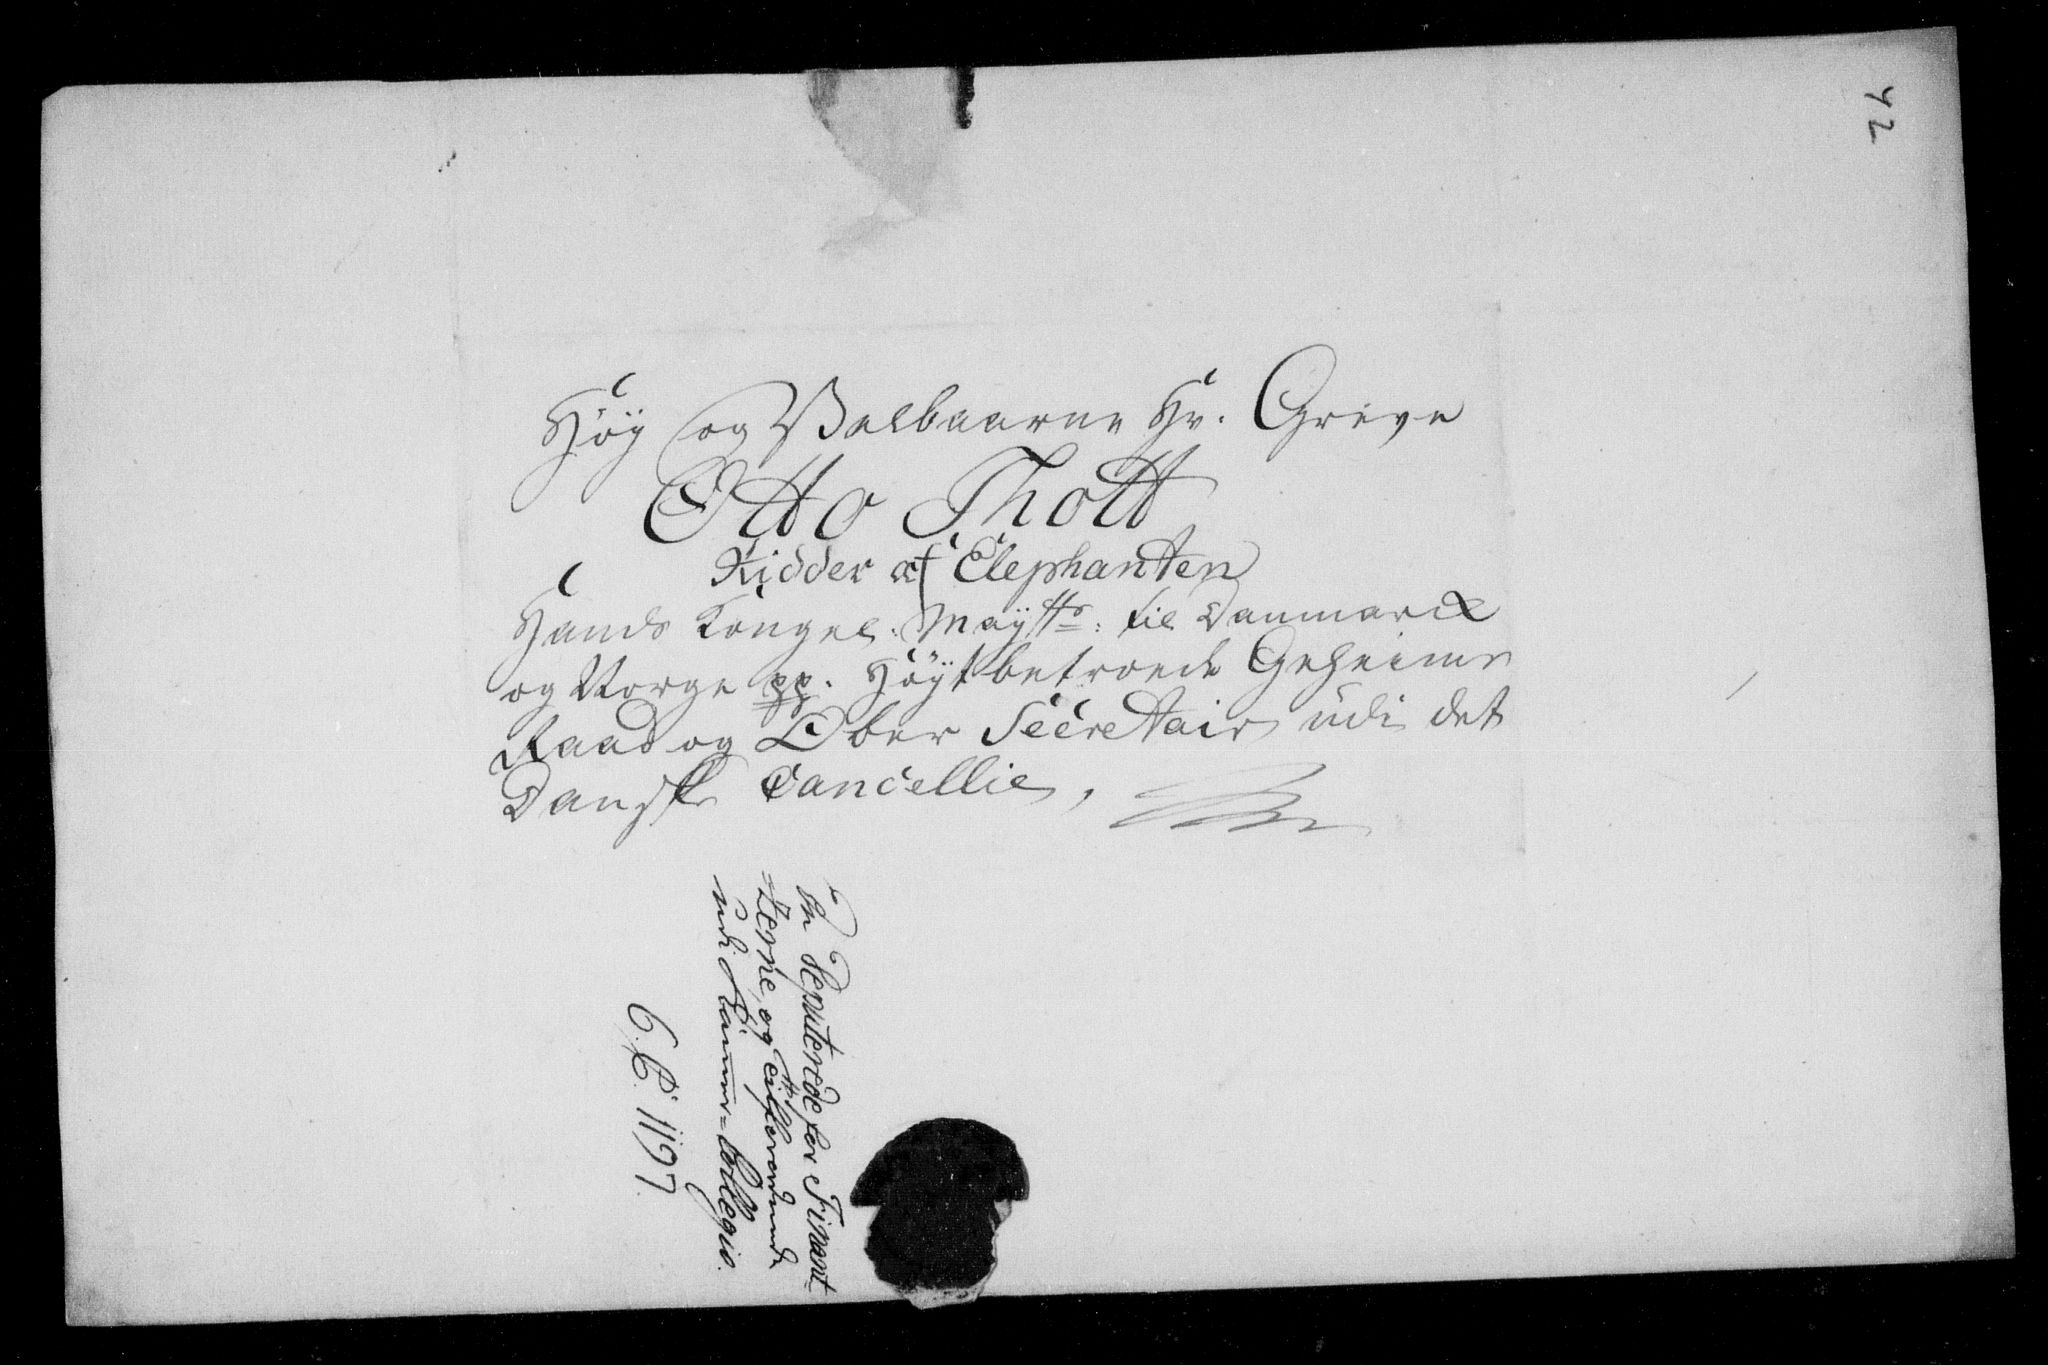 42
Høÿ og Vælbaarne Hr. Greve
Otto Thott
Ridder af Elephanten
Hands Kongel: Maÿtts: til Danmarck
og Norge pp. Høÿtbetroede Geheime
Raad og Ober Secretair udi det
Danske Cancellie,
De Deputerede for Finant-
-zerne, og Tilforordnede
udi Kammer=Collegio.
1197